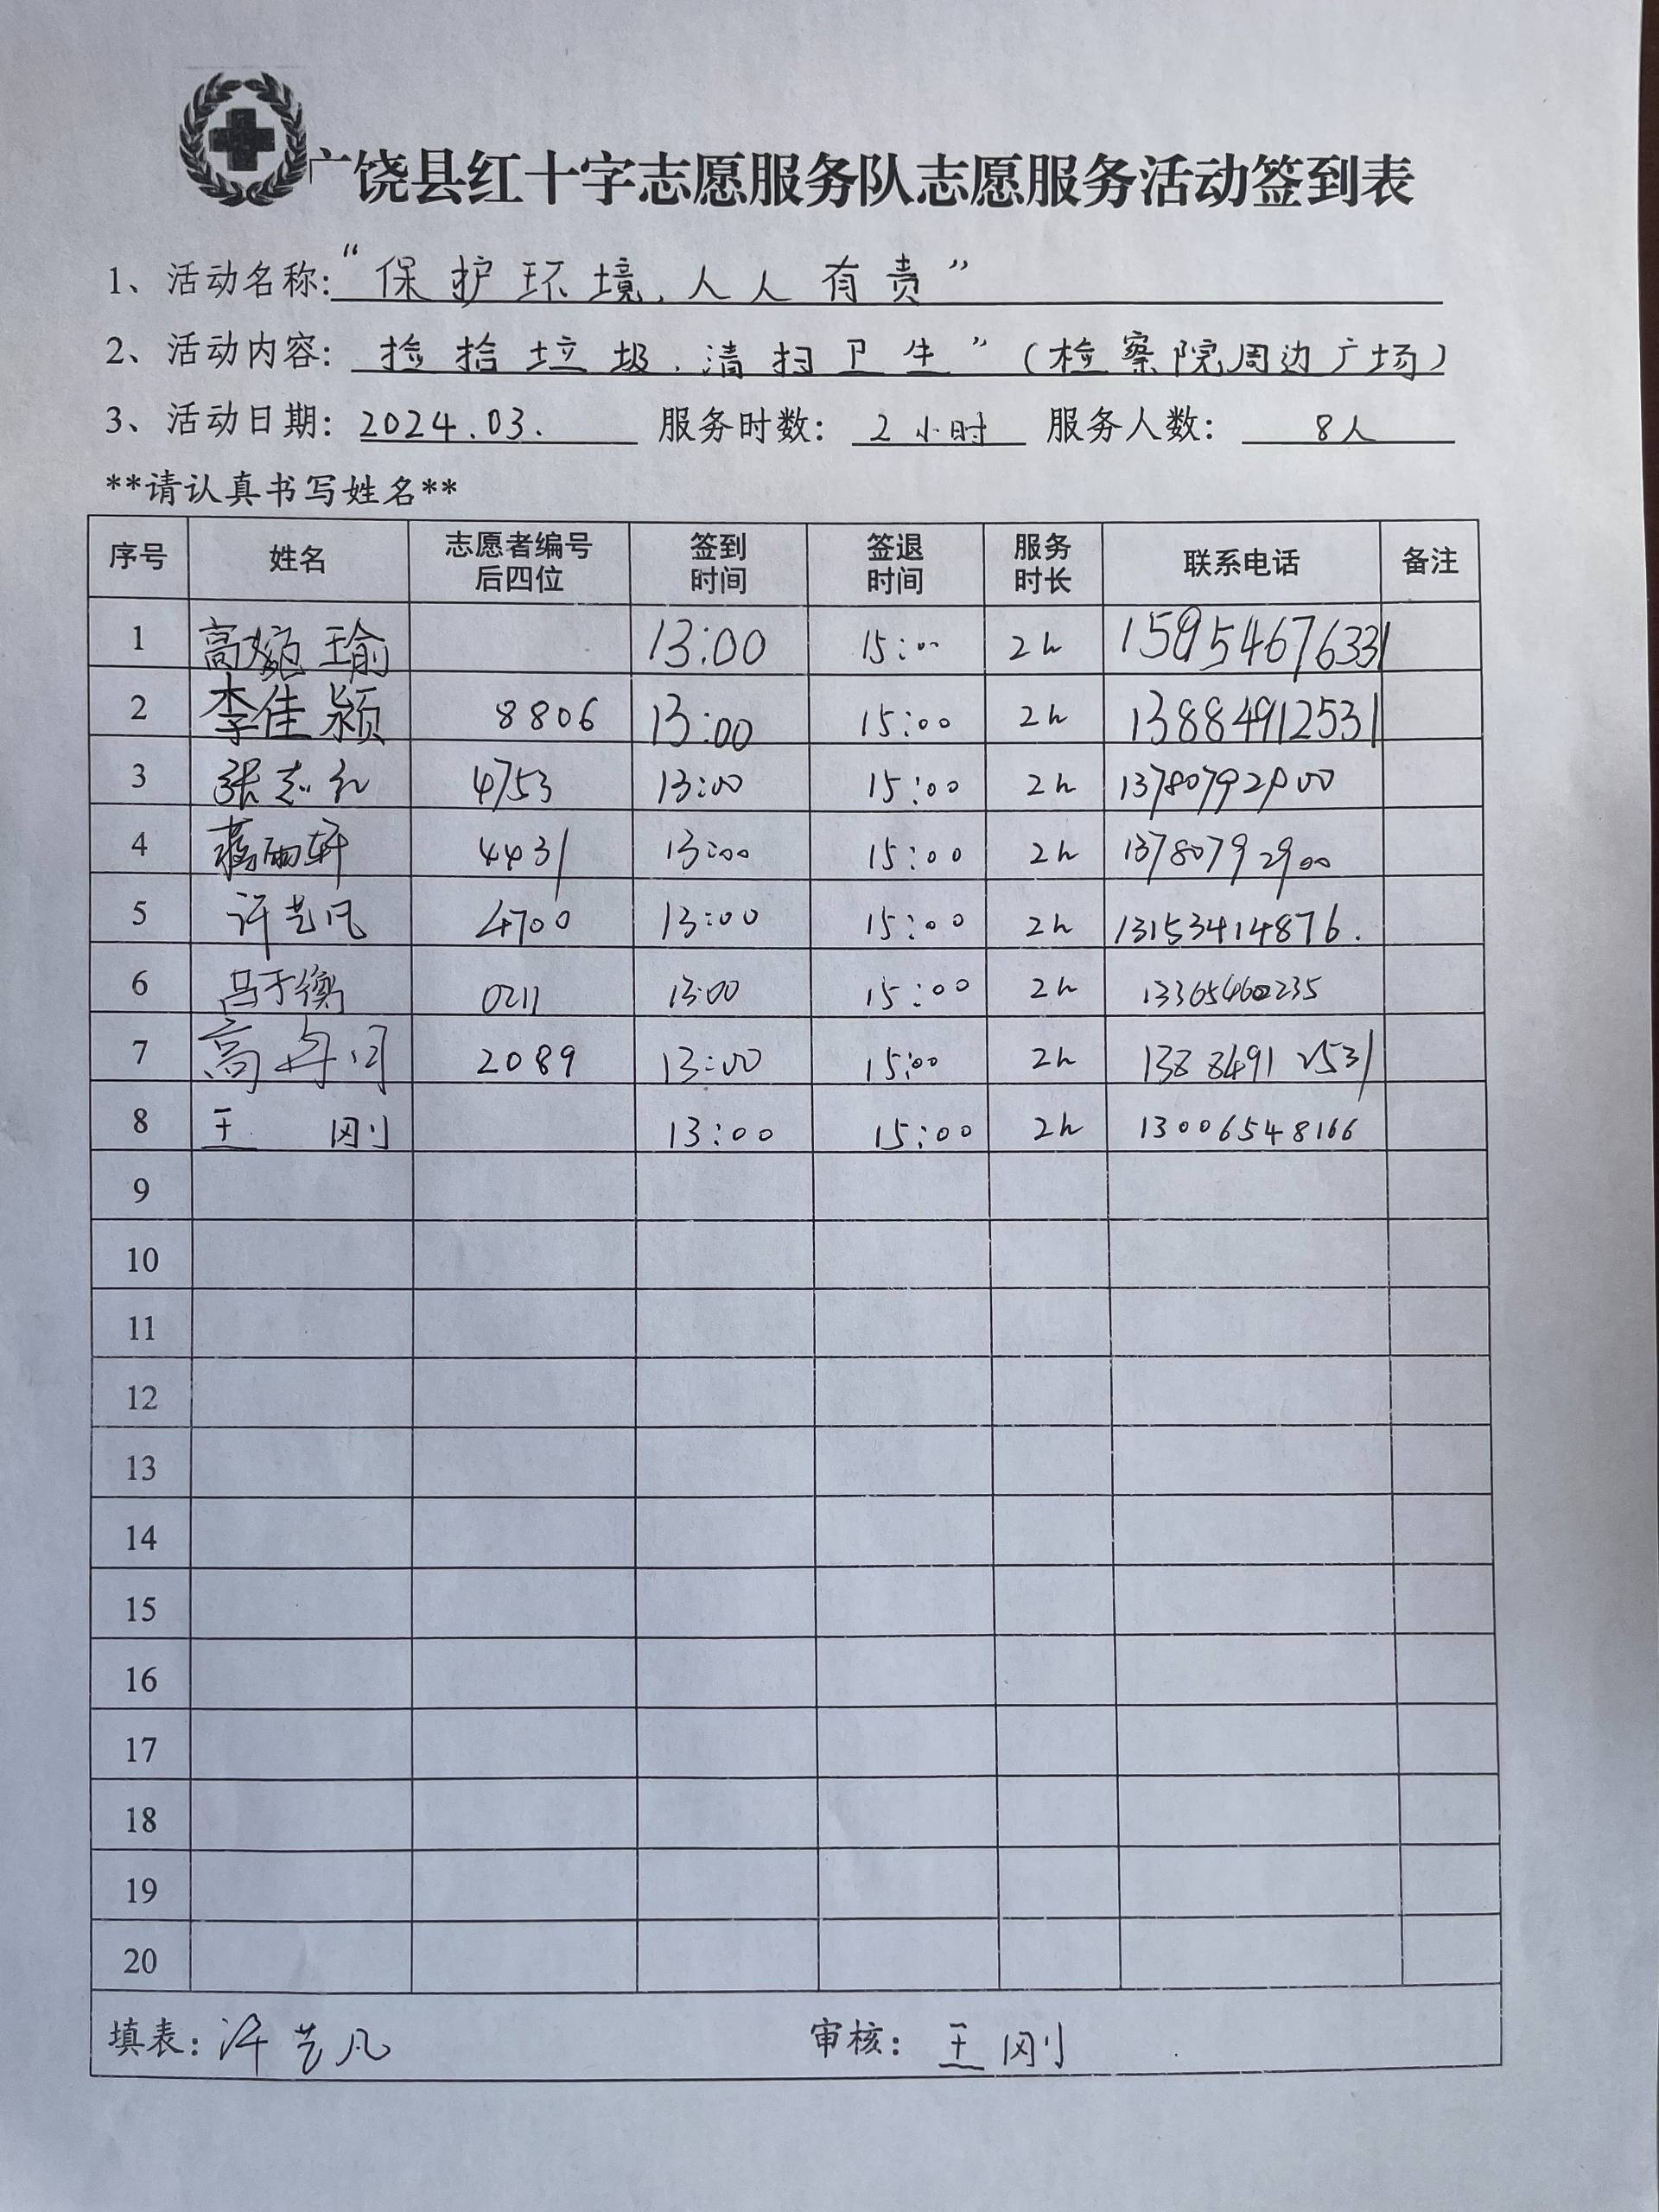 广饶县红十字志愿服务队志愿服务活动签到表
1、活动名称:“保护环境,人人有责”
2、活动内容: 捡拾垃圾,清扫卫生”(检察院周边广场)
3、活动日期: 2024.03. 服务时数: 2小时 服务人数: 8人
**请认真书写姓名**
序号 姓名 志愿者编号后四位 签到时间 签退时间 服务时长 联系电话 备注
1 高婉瑜 13:00 15:00 2h 15954676331
2 李佳颍 8806 13:00 15:00 2h 13884912531
3 张志红 4753 13:00 15:00 2h 13780792900
4 雨轩 4431 13:00 15:00 2h 13780792900
5 许艺凡 4700 13:00 15:00 2h 13153414876.
6 吕于衡 0211 13:00 15:00 2h 13365460235
7 高 2089 13:00 15:00 2h 13884912531
8 王刚 13:00 15:00 2h 13006548166
9
10
11
12
13
14
15
16
17
18
19
20
填表: 许艺凡 审核: 王刚